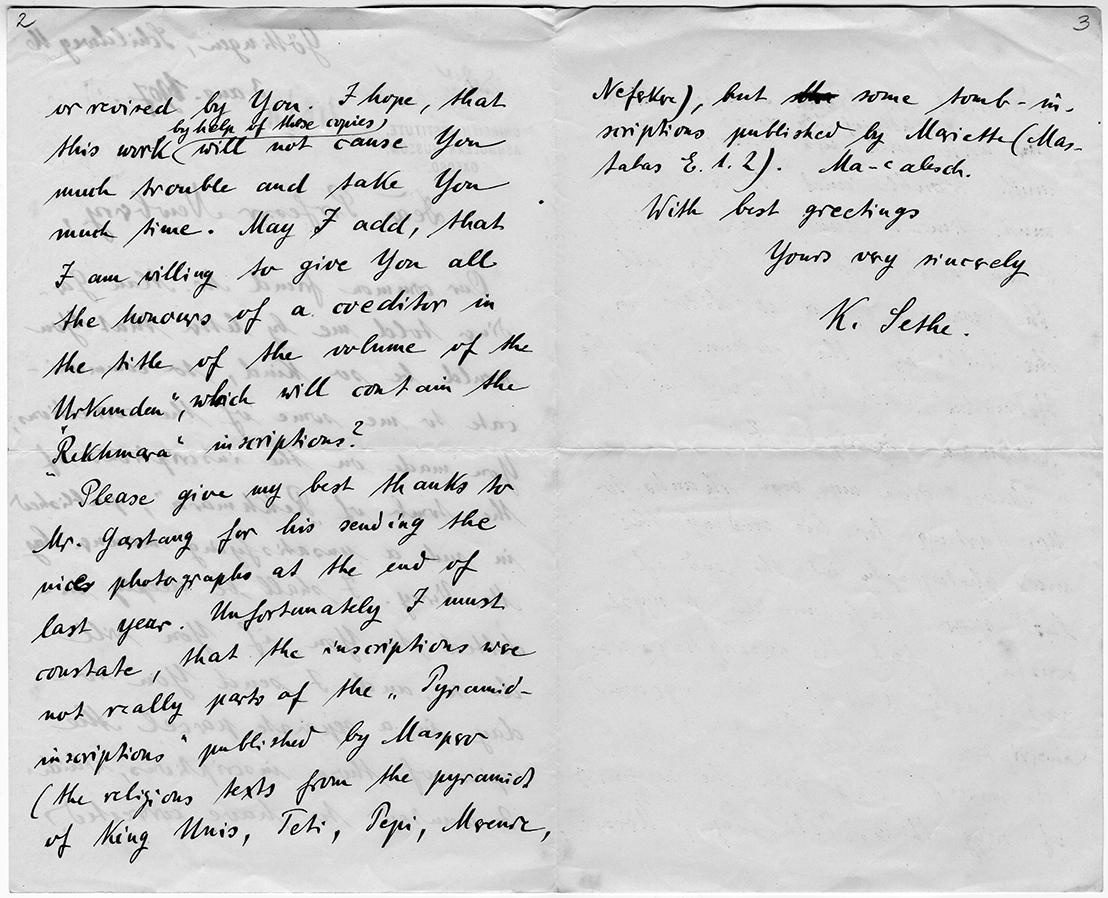 2
or revised by You. I hope, that
by help of those copies
this work will not cause You
much trouble and take You
much time. May I add, that
I am willing to give You all
the honours of a coeditor in
the title of the volume of the
„Urkunden“, which will contain the
„Rekhmara“ inscriptions?
Please give my best thanks to
Mr. Garstang for his sending the
nice photographs at the end of
last year. Unfortunately I must
constate, that the inscriptions were
not really parts of the „Pyramid-
inscriptions“ published by Maspero
(the religious texts from the pyramids
of King Unis, Teti, Pepi, Merenre,
3
Neferkre), but some tomb-in-
scriptions published by Mariette (Mas-
tabas E. 1. 2). Ma-
With best greetings
Yours very sincerely
K. Sethe.